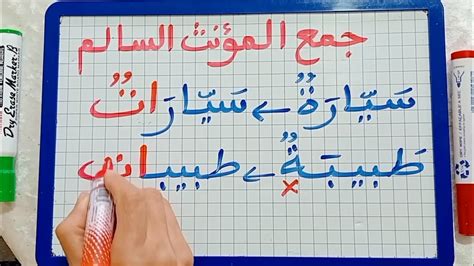 جمع المؤنث السالم
سَيّارَةٌ ← سَيّارَاتٌ
طَبيبَةٌ ← طبيبات
Dry Erase Marker.B